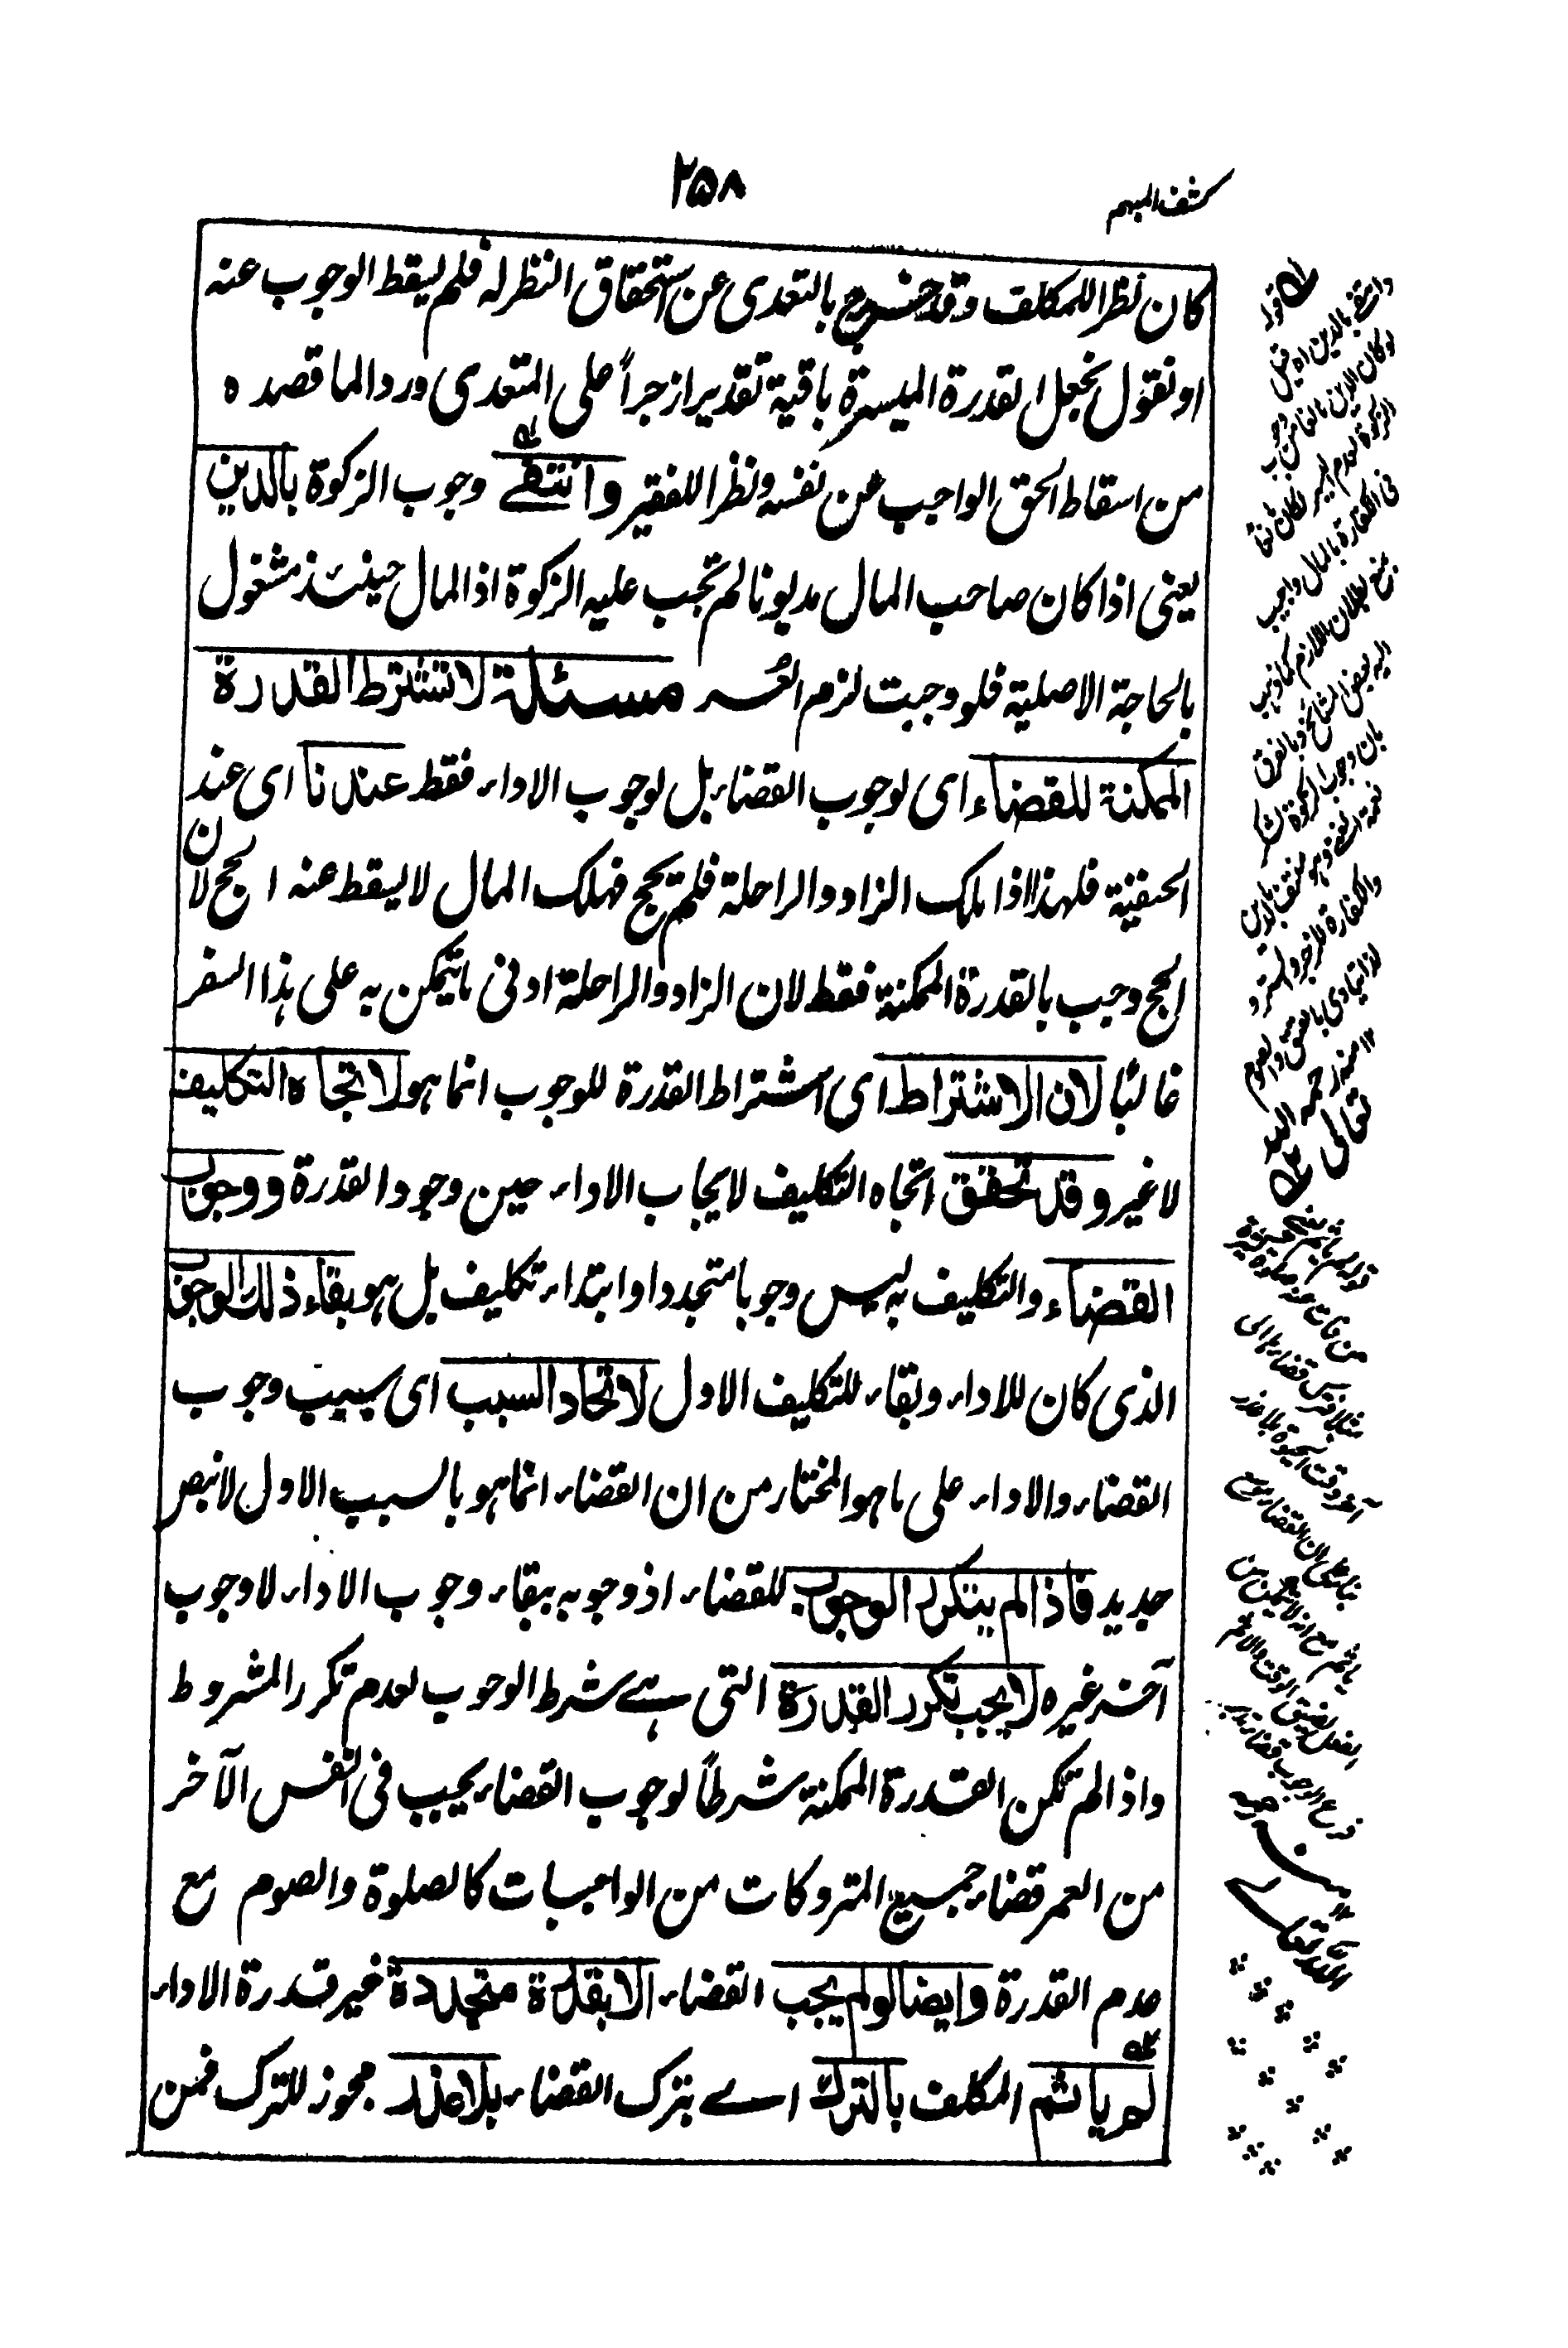 كشف المبهم
٢٥٨
كان نظرا للمكلف وقد خرج بالتعدى عن استحقاق النظر له فلم يسقط الوجوب عنه
او نقول نجعل القدرة الميسرة باقية تقديرا زجراً على المتعدى وردا لما قصده
من اسقاط الحق الواجب عن نفسه ونظرا للفقير وانتفے وجوب الزكوة بالدين
يعنى اذا كان صاحب المال مديونا لم تجب عليه الزكوة اذ المال حينئذ مشغول
بالحاجة الاصلية فلو وجبت لزم العسر مسئلة لا تشترط القدرة
الممكنة للقضاء اى لوجوب القضاء بل لوجوب الاداء فقط عندنا اى عند
الحنفية فلهذا اذا ملك الزاد والراحلة فلم يحج فهلك المال لا يسقط عنه الحج لان
الحج وجب بالقدرة الممكنة فقط لان الزاد والراحلة ادنى ما يتمكن به على هذا السفر
غالبًا لان الاشتراط اى اشتراط القدرة للوجوب انما هو لاتجاه التكليف
لا غير وقد تحقق اتجاه التكليف لايجاب الاداء حين وجود القدرة ووجوب
القضاء والتكليف به ليس وجوبا متجددا وابتداء تكليف بل هو بقاء ذلك الوجوب
الذى كان للاداء وبقاء للتكليف الاول لاتحاد السبب اى سبب وجوب
القضاء والاداء على ما هو المختار من ان القضاء انما هو بالسبب الاول لا بنص
جديد فاذا لم يتكرر الوجوب للقضاء اذ وجوبه ببقاء وجوب الاداء لا وجوب
آخر غيره لا يجب تكرر القدرة التى هے شرط الوجوب لعدم تكرر المشروط
واذا لم تكن القدرة الممكنة شرطاً لوجوب القضاء يجب فى النفس الآخر
من العمر قضاء جميع المتروكات من الواجبات كالصلوة والصوم مع
عدم القدرة وايضا لو لم يجب القضاء الا بقدرة متجددة غير قدرة الاداء
لم ياثم المكلف بالترك اے بترك القضاء بلا عذر مجوز للترك فمن
قوله
وانتفے بالدين اه قيل
لو كان الدين مانعا من وجوب
الزكوة لعدم اليسر لكان مانعا
فى الكفارة بالمال واجيب
بمنع بطلان اللازم كما ذهب
اليه بعض المشائخ وبالفرق
بان وجوب الزكوة لشكر
نعمة
والكفارة للزجر والستر و
لذا يتادى بالعتق والصوم
١٢ منه رحمه الله
تعالى